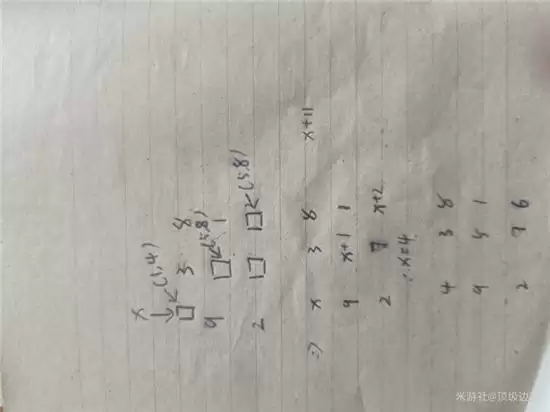 x
↓
□ ↙(1,4) 3 8
9 □ ↖(5,8) 1
2 □ □ ↖(5,8)
⇒ x 3 8 x+11
9 x+1 1
2 7 x+2
∴x=4
4 3 8
9 5 1
2 7 6
米游社@顶圾边